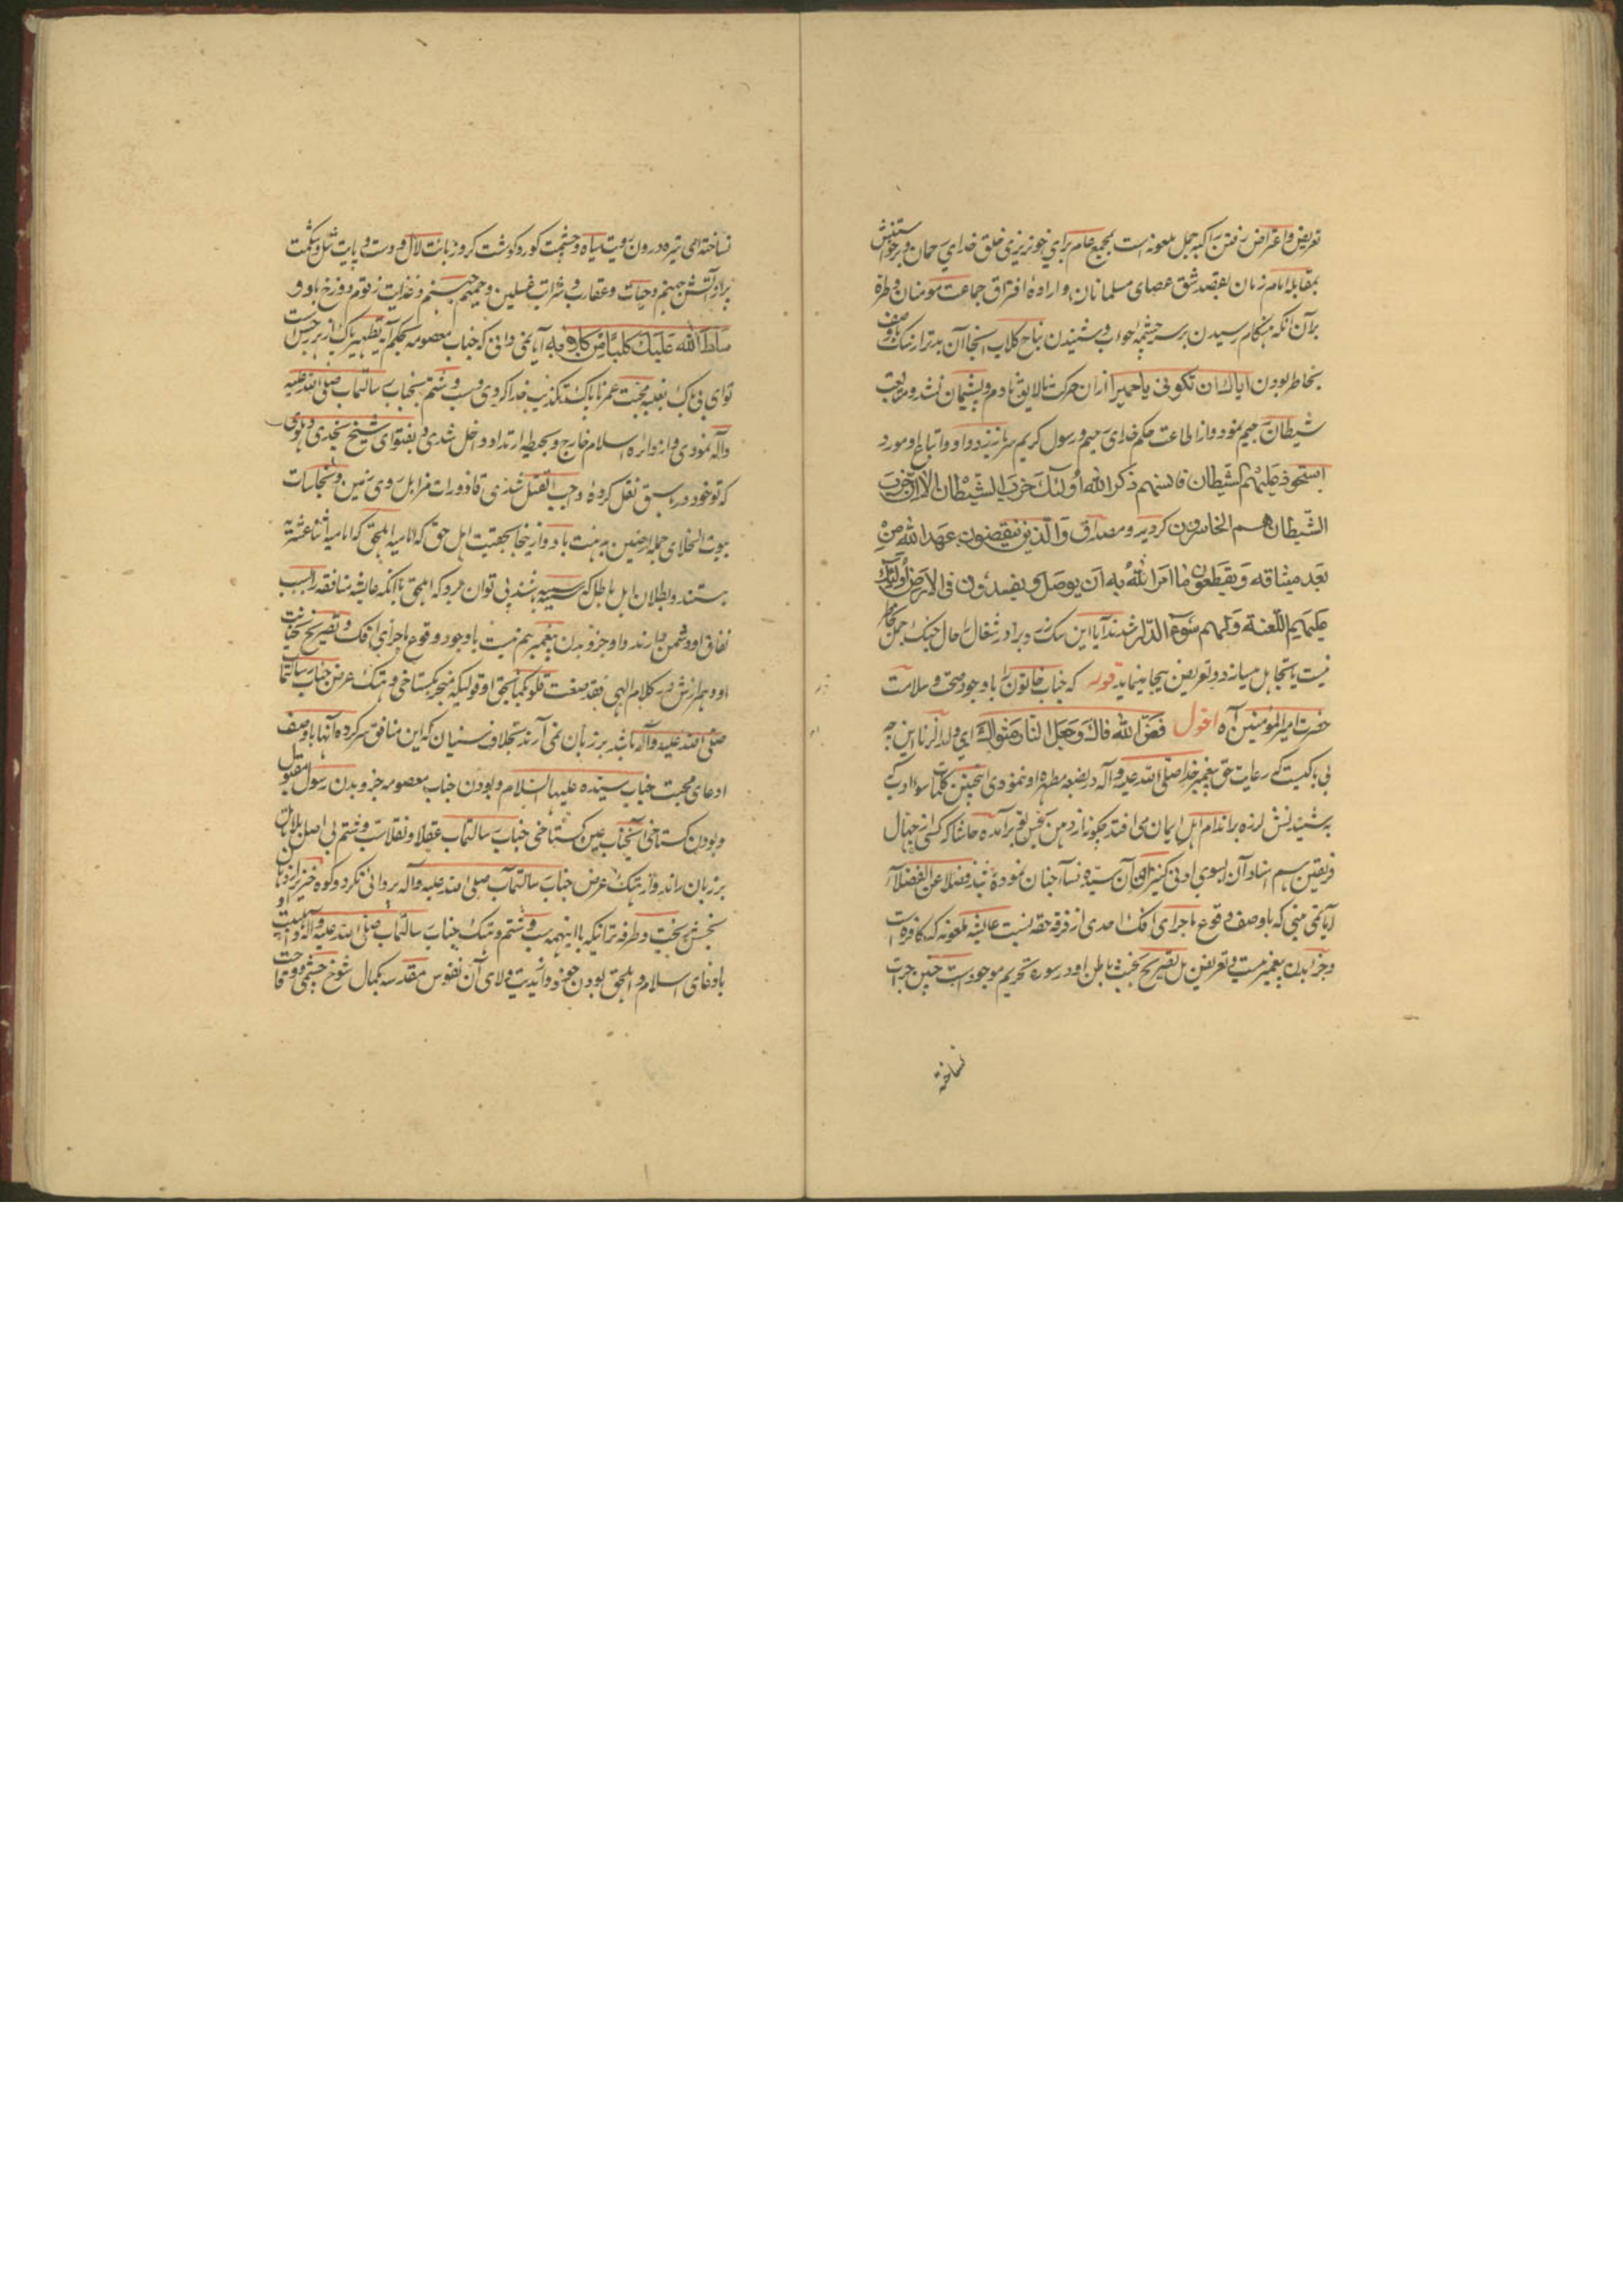 تعریض و اعتراض رفتن راکبهٔ جمل ملعونه است بمجمع عام برای خونریزی خلق خدای رحمان و برخواستنش
بمقابلهٔ امام زمان بقصد شق عصای مسلمانان و ارادهٔ افتراق جماعت مومنان و طرفه
بران آنکه هنگام رسیدن بر سر چشمهٔ حواب و شنیدن نباح کلاب آنجا آن بدتر از سک باوصف
بخاطر بودن ایاک ان تکونی یا حمیرا ازان حرکت نالایق نادم و پشیمان نشد و متابعت
شیطان رجیم نمود و از اطاعت حکم خدای رحیم و رسول کریم سر باز زد و او و اتباع او مورد
استحوذ علیهم الشیطان فانسٰهم ذکر الله اولئک حزب الشیطان الا ان حزب
الشیطان هم الخاسرون کردید و مصداق والذین ینقضون عهد الله من
بعد میثاقه ویقطعون ما امر الله به ان یوصل ویفسدون فی الارض اولئک
علیهم اللعنة ولهم سوٓء الدار شدند آیا این سک زرد برادر شغال را حال جنک جمل بخاطر
نیست یا تجاهل میسازد و تعریض بیجا مینماید قوله که جناب خاتون را باوجود صحت و سلامت
حضرت امیر المؤمنین آه اقول فض الله فاک وجعل النار مثواک ای ولد الزنا این چه
بی باکیست که رعایت حق پیغمبر خدا صلی الله علیه وآله در بضعه مطهره او ننمودی اینچنین کلمات سوء ادب که
به شنیدنش لرزه بر اندام اهل ایمان می افتد چکونه از دهن نجس تو برآمده حاشا که کسی از جهال
فریقین هم اسناد آن بسوی ادنی کنیزان آن سیدهٔ نسآء جنان نموده باشد فضلا عن الفضلاء
آیا نمی بینی که باوصف وقوع ماجرای افک احدی از فرقه حقه نسبت عایشه ملعونه که کافره است
و جزء بدن پیغمبر نیست و تعریض بل تصریح بخبث باطن او در سوره تحریم موجود است چنین جرات
نساخته
نساخته ای تیره درون رویت سیاه و چشمت کور و کوشت کر و زبانت لال و دست و پایت شل و شکمت
پر از آتش جهنم و حیات و عقارب و شرابت غسلین و حمیم جهنم و غذایت زقوم دوزخ باد و
سلط الله علیک کلبًا من کلابه آیا نمی دانی که جناب معصومه بحکم آیه تطهیر پاک از هر رجس است
تو ای بی باک بغلبه محبت عمر ناپاک تکذیب خدا کردی و سب و شتم بجناب رسالتماب صلی الله علیه
وآله نمودی و از دایره اسلام خارج و بحیطه ارتداد داخل شدی و بفتوای شیخ نجدی دهلوی
که تو خود در ما سبق نقل کردهٔ واجب القتل شدی قاذورات مزابل روی زمین و نجاسات
بیوت الخلای جمله ارضین بدهنت باد و از ینجا بحقیت اهل حق که امامیه اثنا عشریه
هستند و بطلان اهل باطل که سنیه باشند پی توان برد که اهل حق با آنکه عایشه منافقه را بسبب
نفاق او دشمن میدارند و او جزو بدن پیغمبر هم نیست باوجود وقوع ماجرای افک و تصریح خیانت
او و همرازش در کلام الهی فقد صغت قلوبکما نسبتی او قولیکه منجر بکستاخی و هتک عرض جناب رسالتماب
صلی الله علیه وآله باشد بر زبان نمی آرند بخلاف سنیان که این منافق سرکرده آنها باوصف
ادعای محبت جناب سیده علیها السلام و بودن جناب معصومه جزو بدن رسول مقبول
و بودن کستاخی آنجناب عین کستاخی جناب رسالتماب عقلا و نقلا سب و شتم بی اصل
بر زبان راند و از هتک عرض جناب رسالتماب صلی الله علیه وآله پروائی نکرد و کوه
نجس بریخت و طرفه تر آنکه با اینهمه سب و شتم و هتک جناب رسالتماب صلی الله علیه وآله و اهلبیت او
بادعای اسلام و اهل حق بودن خود و اندیت ولای آن نفوس مقدسه بکمال شوخ چشمی و وقاحت